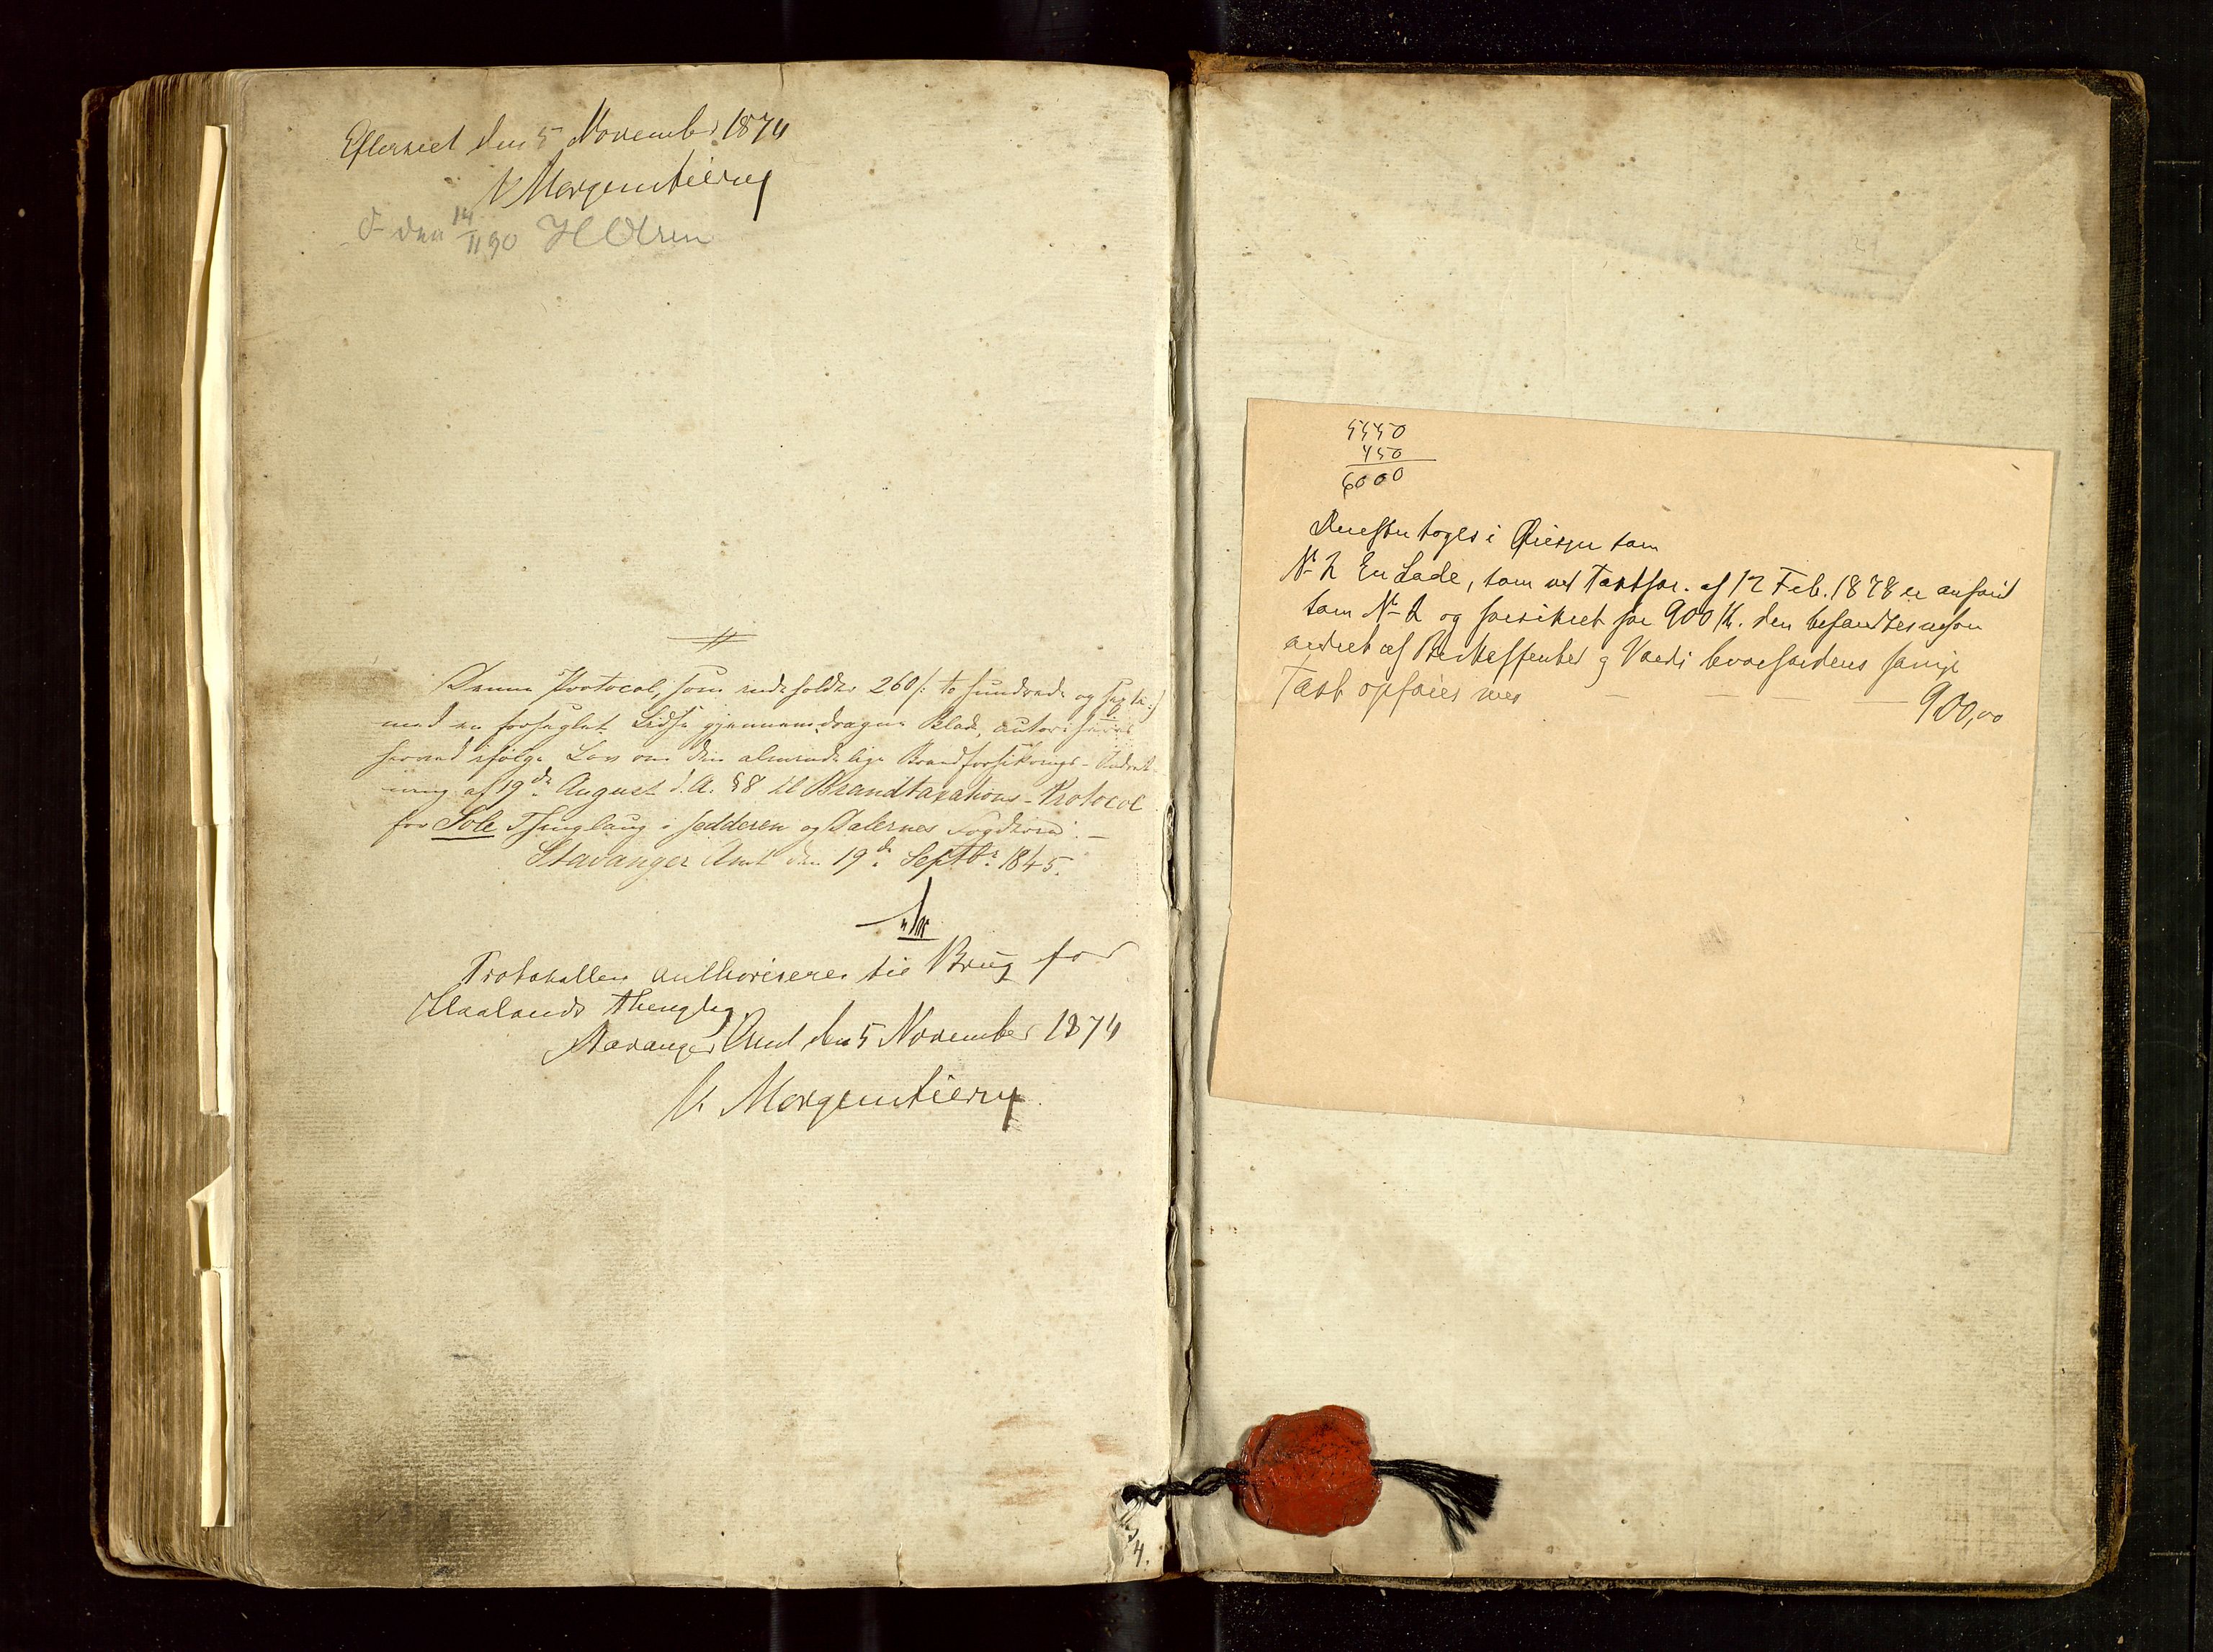 Efterseet den 5 November 1874
V Morgenstierne
O den 14/11 90 H Olsen
Denne Protocol, som indeholder 260 /: to hundrede og sexti :/
med en forseglet Lidse gjennemdragne Blade, autoriseres
herved ifølge Lov om den almindelige Brandforsikrings-Indret-
ning af 19de August d. A. §8 til Brandtaxations-Protocol
for Sole Thinglaug i Jedderen og Dalernes Fogderie. –
Stavanger Amt den 19de Septbr 1845.
Protokollen authoriseres til Brug for
Haalands Thinglag
Stavanger Amt den 5 November 1874
V. Morgenstierne
5550
450
6000
Duesten toges i Øiesyn som
No 2 En Lade, som ved Taxtfor. af 12 Feb. 1878 er anført
som No 2 og forsikret for 900 Kr. den befandtes
andret af Beskaffenhed og Værdi hvorfor dens forrige
Taxt opføies med — — — 900,00